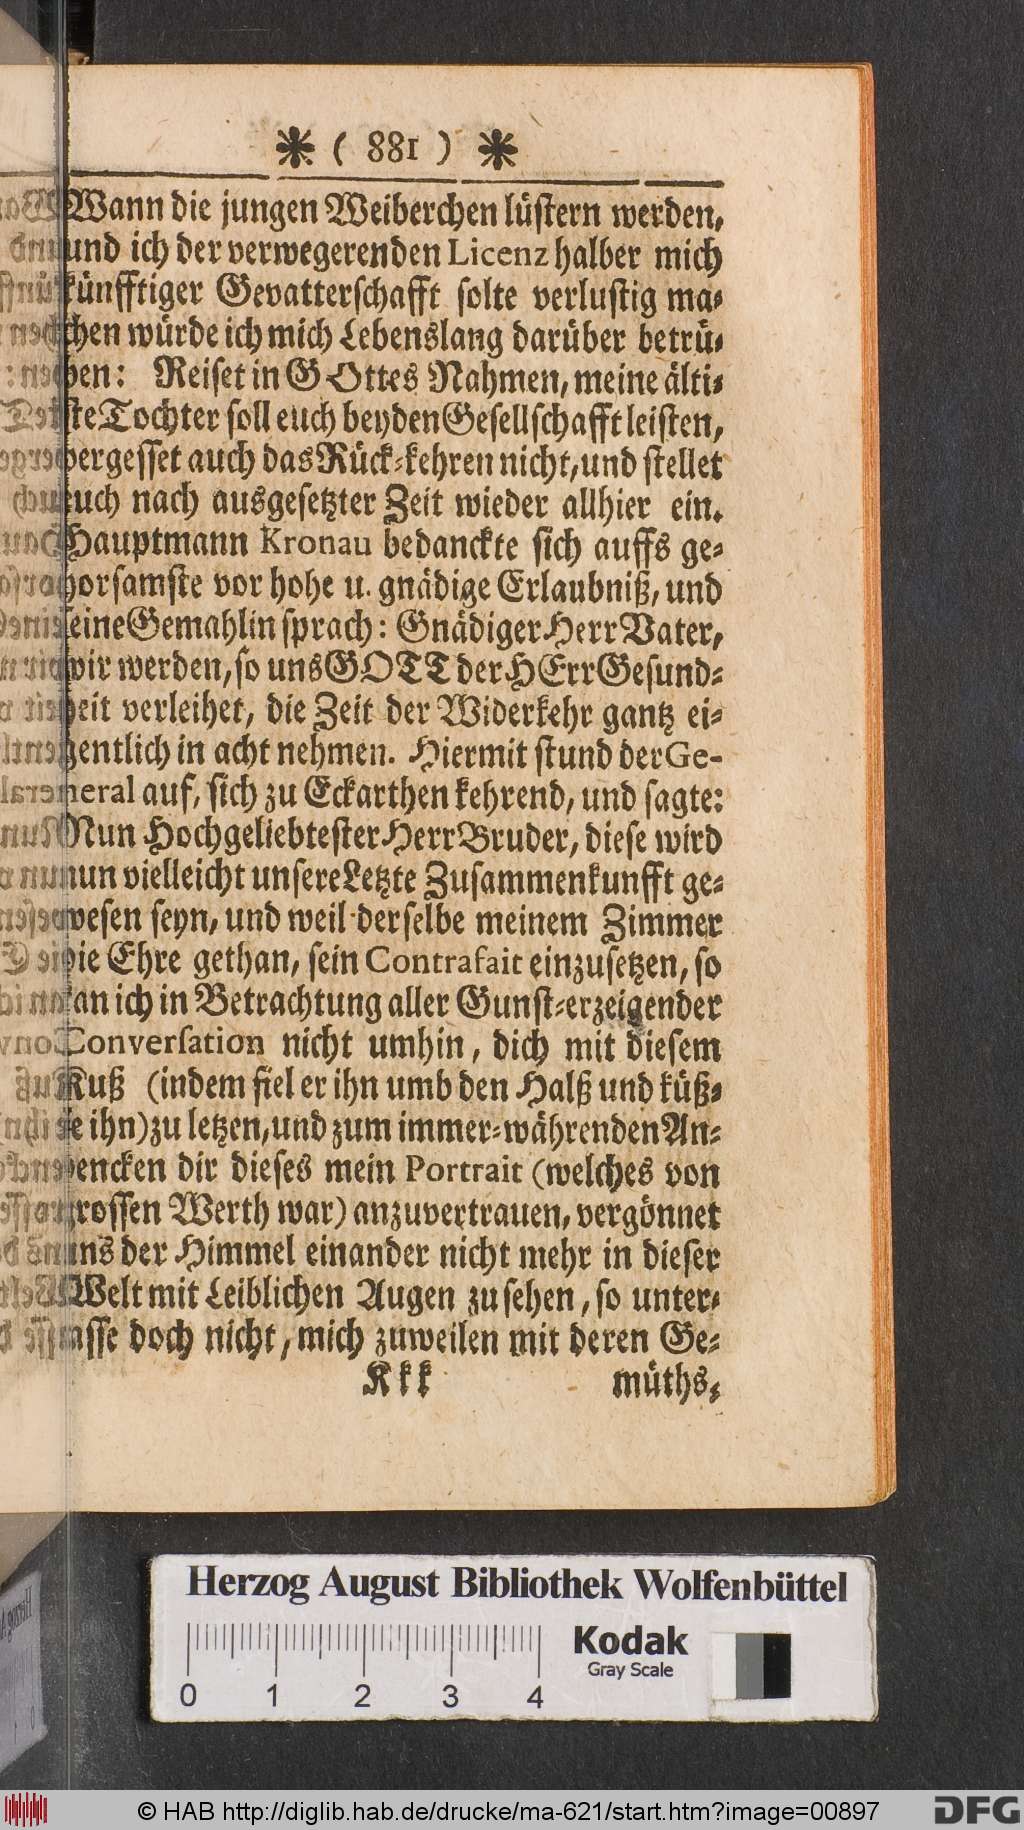 * ( 881 ) *
Wann die jungen Weiberchen lüstern werden,
und ich der verwegerenden Licenz halber mich
künfftiger Gevatterschafft solte verlustig ma-
chen würde ich mich Lebenslang darüber betrü-
ben: Reiset in GOttes Nahmen, meine älti-
ste Tochter soll euch beyden Gesellschafft leisten,
vergesset auch das Rück-kehren nicht, und stellet
euch nach ausgesetzter Zeit wieder allhier ein.
Hauptmann Kronau bedanckte sich auffs ge-
horsamste vor hohe u. gnädige Erlaubniß, und
seine Gemahlin sprach: Gnädiger Herr Vater,
wir werden, so uns GOTT der HErr Gesund-
heit verleihet, die Zeit der Widerkehr gantz ei-
gentlich in acht nehmen. Hiermit stund der Ge-
neral auf, sich zu Eckarthen kehrend, und sagte:
Nun Hochgeliebtester Herr Bruder, diese wird
nun vielleicht unsere Letzte Zusammenkunfft ge-
wesen seyn, und weil derselbe meinem Zimmer
die Ehre gethan, sein Contrafait einzusetzen, so
kan ich in Betrachtung aller Gunst-erzeigender
Conversation nicht umhin, dich mit diesem
Kuß (indem fiel er ihn umb den Halß und küß-
te ihn) zu letzen, und zum immer-währenden An-
dencken dir dieses mein Portrait (welches von
grossen Werth war) anzuvertrauen, vergönnet
uns der Himmel einander nicht mehr in dieser
Welt mit Leiblichen Augen zu sehen, so unter-
lasse doch nicht, mich zuweilen mit deren Ge-
Kkk müths-
Herzog August Bibliothek Wolfenbüttel
Kodak
Gray Scale
0 1 2 3 4
© HAB http://diglib.hab.de/drucke/ma-621/start.htm?image=00897
DFG